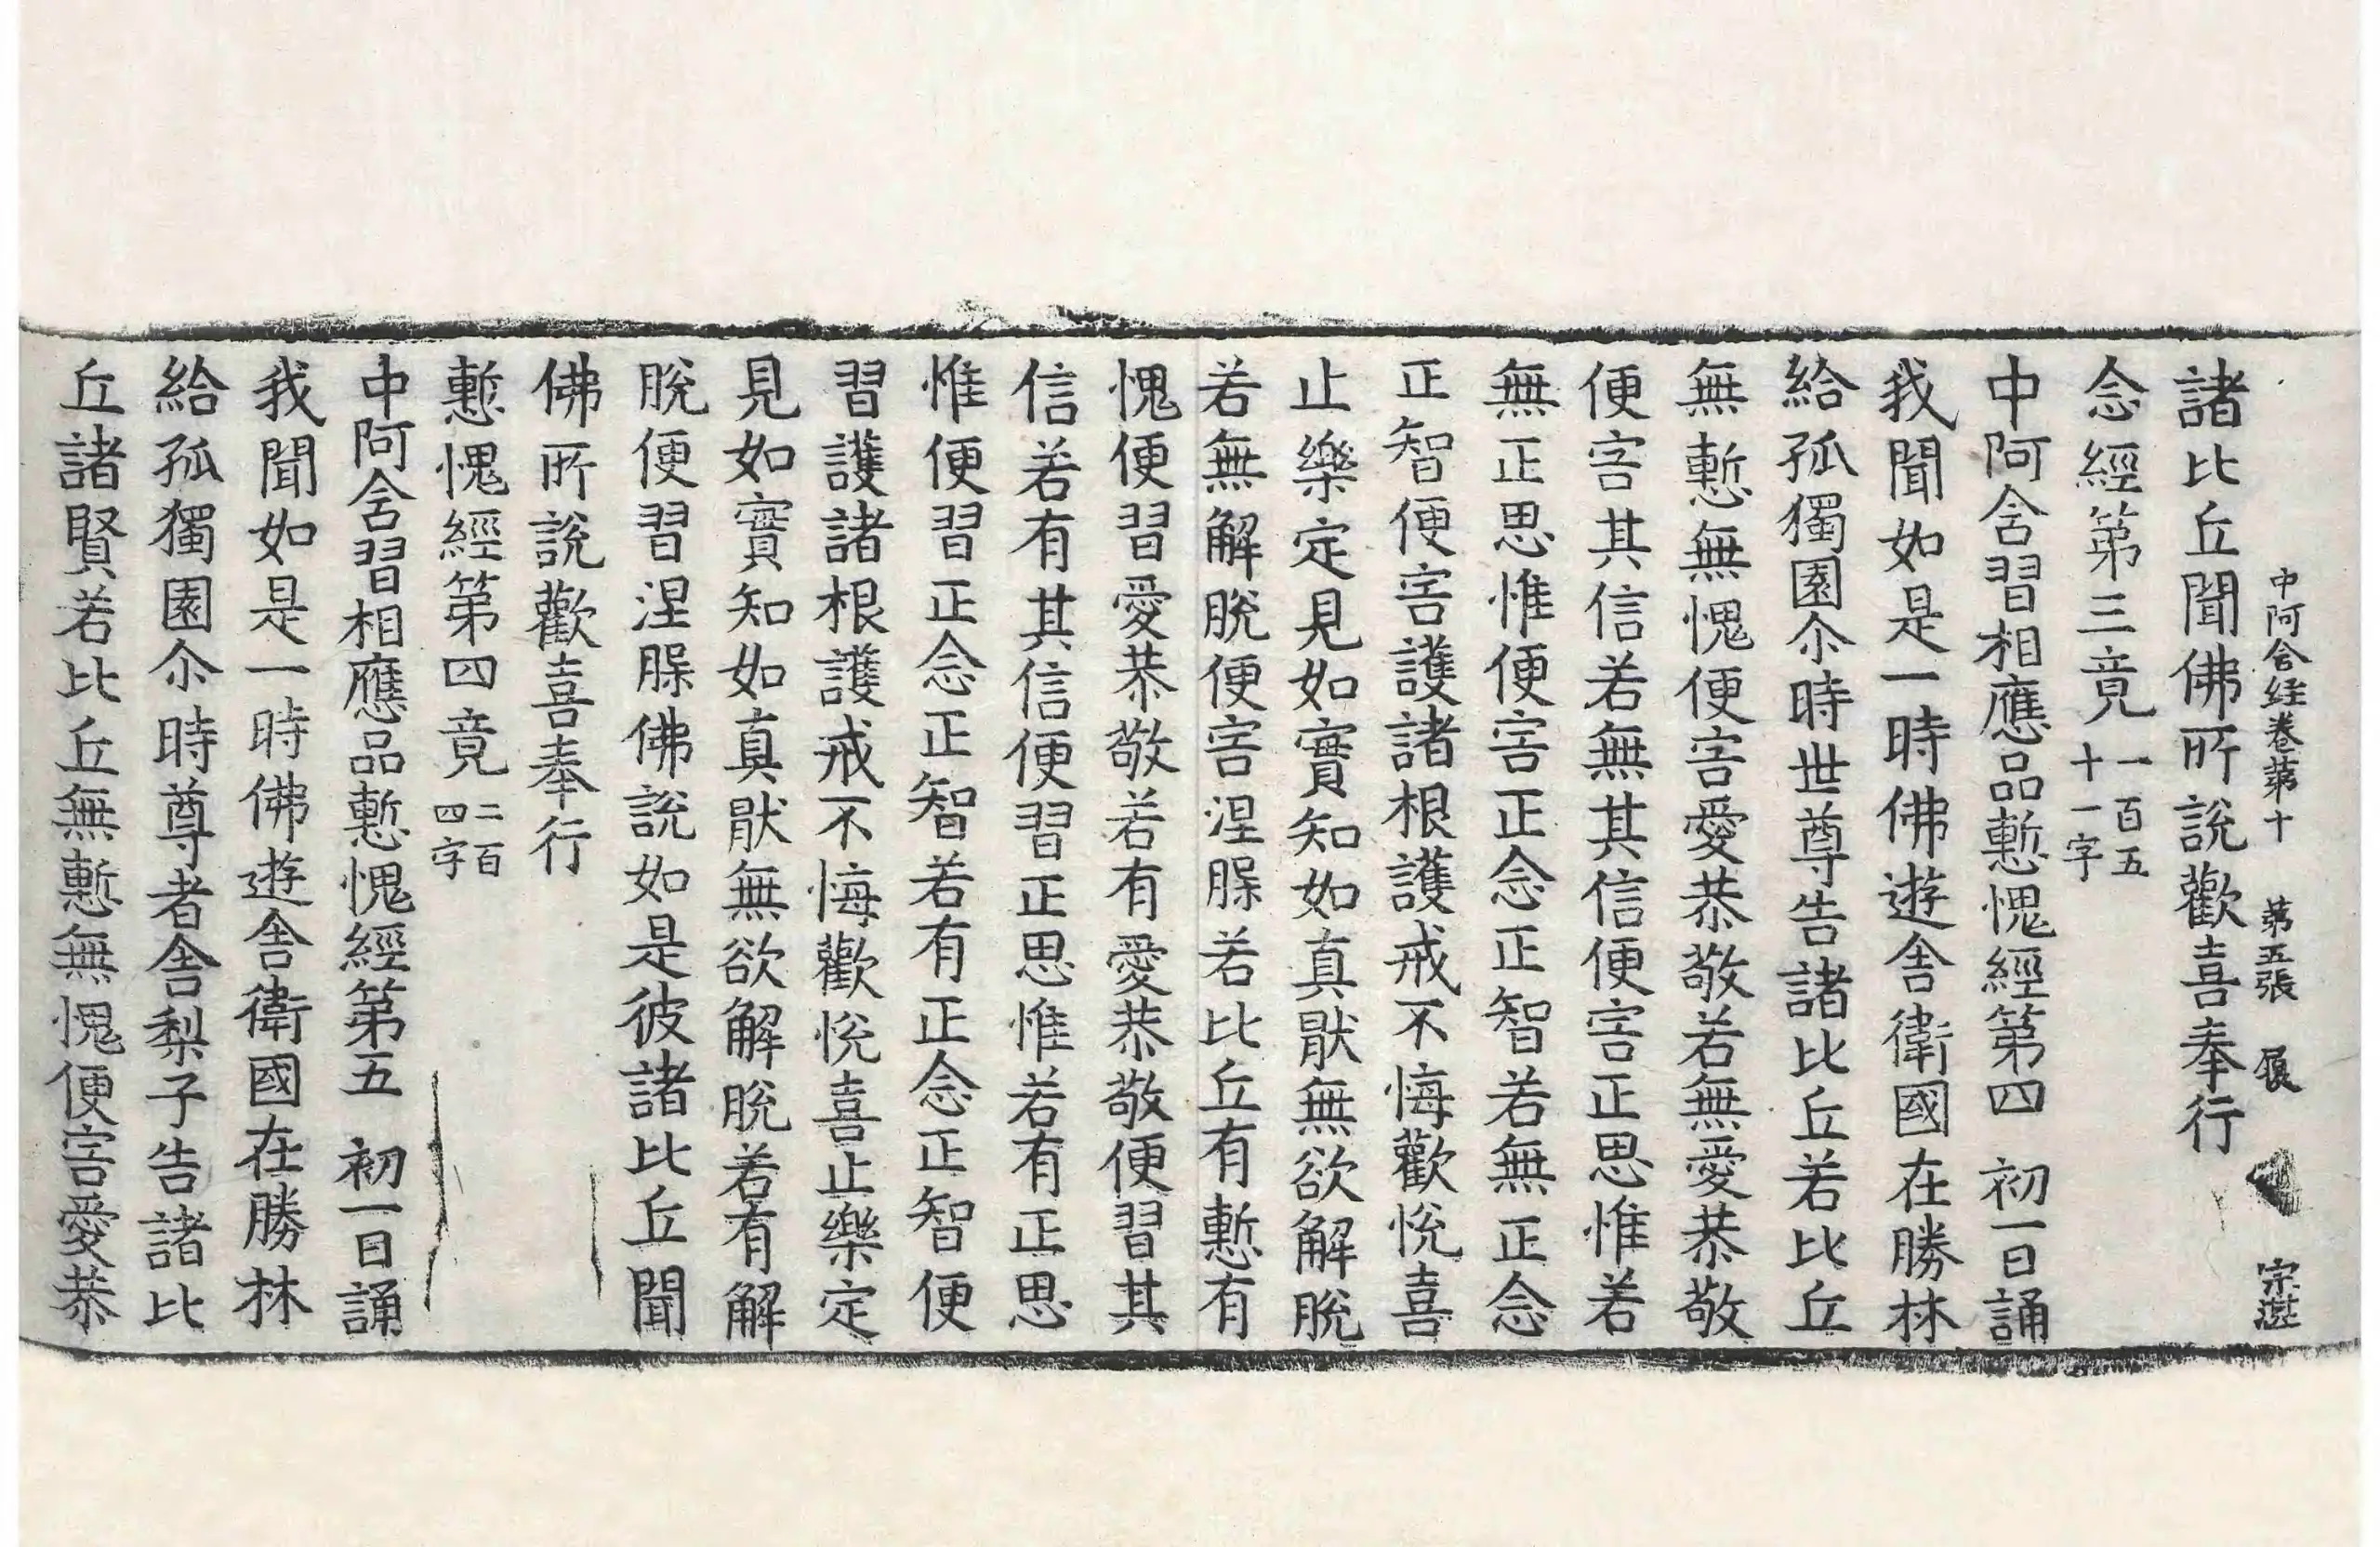 中阿含経卷苐十　苐五張　展　宗
諸比丘聞佛所說歡喜奉行
念經苐三竟一百五十一字
中阿含習相應品慙愧經第四　初一日誦
我聞如是一時佛遊舍衛國在勝林
給孤獨園尒時世尊告諸比丘若比丘
無慙無愧便害愛恭敬若無愛恭敬
便害其信若無其信便害正思惟若
無正思惟便害正念正智若無正念
正智便害護諸根護戒不悔歡悅喜
止樂定見如實知如真猒無欲解脫
若無解脫便害涅槃若比丘有慙有
愧便習愛恭敬若有愛恭敬便習其
信若有其信便習正思惟若有正思
惟便習正念正智若有正念正智便
習護諸根護戒不悔歡悅喜止樂定
見如實知如真猒無欲解脫若有解
脫便習涅槃佛說如是彼諸比丘聞
佛所說歡喜奉行
慙愧經第四竟二百四字
中阿含習相應品慙愧經第五　初一日誦
我聞如是一時佛遊舍衛國在勝林
給孤獨園尒時尊者舍梨子告諸比
丘諸賢若比丘無慙無愧便害愛恭